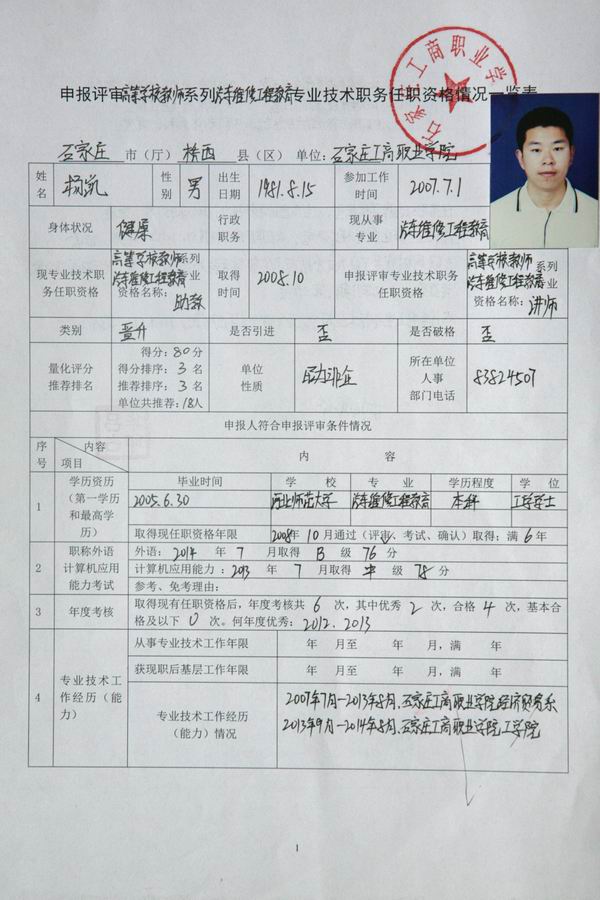 申报评审高等学校教师系列汽车维修工程教育专业技术职务任职资格情况一览表
石家庄工商职业学院
石家庄 市(厅) 桥西 县(区) 单位:石家庄工商职业学院
姓名 杨凯 性别 男 出生日期 1981.8.15 参加工作时间 2007.7.1
身体状况 健康 行政职务 现从事专业 汽车维修工程教育
现专业技术职务任职资格 高等学校教师系列 汽车维修工程教育专业 资格名称:助教 取得时间 2008.10 申报评审专业技术职务任职资格 高等学校教师系列 汽车维修工程教育专业 资格名称:讲师
类别 晋升 是否引进 否 是否破格 否
量化评分推荐排名 得分:80分 得分排序:3名 推荐排序:3名 单位共推荐:18人 单位性质 所在单位人事部门电话 83824507
申报人符合申报评审条件情况
序号 内容 项目 内 容
1 学历资历(第一学历和最高学历) 毕业时间 学 校 专 业 学历程度 学 位
2005.6.30 河北师范大学 汽车维修工程教育 本科 工学学士
取得现任职资格年限 2008年10月通过(评审、考试、确认)取得;满6年
2 职称外语计算机应用能力考试 外语:2014 年 7 月取得 B 级 76 分
计算机应用能力:2013 年 7 月取得 中 级 78 分
参考、免考理由:
3 年度考核 取得现有任职资格后,年度考核共 6 次,其中优秀 2 次,合格 4 次,基本合
格及以下 0 次。何年度优秀:2012.2013
4 专业技术工作经历(能力) 从事专业技术工作年限 年 月至 年 月,满 年
获现职后基层工作年限 年 月至 年 月,满 年
专业技术工作经历(能力)情况 2007年7月-2013年8月.石家庄工商职业学院经济贸易系
2013年9月-2014年8月.石家庄工商职业学院工学院
1